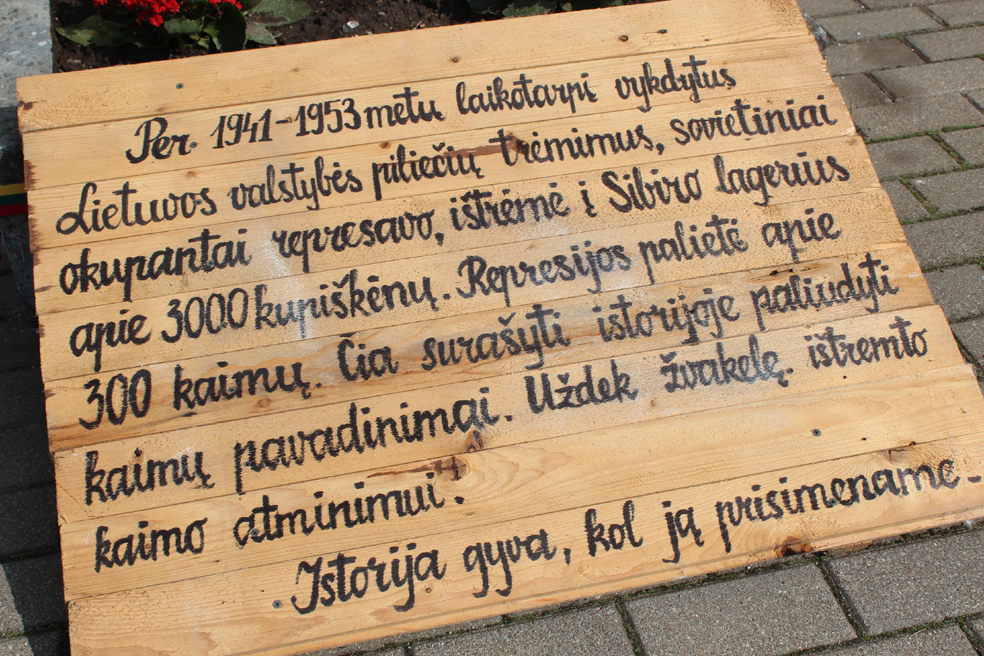 Per 1941-1953 metų laikotarpį vykdytus
Lietuvos valstybės piliečių trėmimus, sovietiniai
okupantai represavo, ištrėmė į Sibiro lagerius
apie 3000 kupiškėnų. Represijos palietė apie
300 kaimų. Čia surašyti istorijoje paliudyti
kaimų pavadinimai. Uždek žvakelę ištremto
kaimo atminimui.
Istorija gyva, kol ją prisimename.